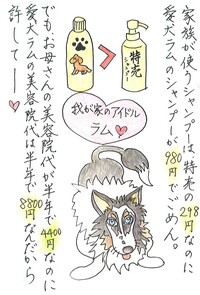 家族が使うシャンプーは、特売の298円なのに
愛犬ラムのシャンプーが980円でごめん。
特売
シャンプー
我が家のアイドル
ラム♡
でも、お母さんの美容院代が半年で4400円なのに
愛犬ラムの美容院代は半年で8800円なんだから
許してーー♡